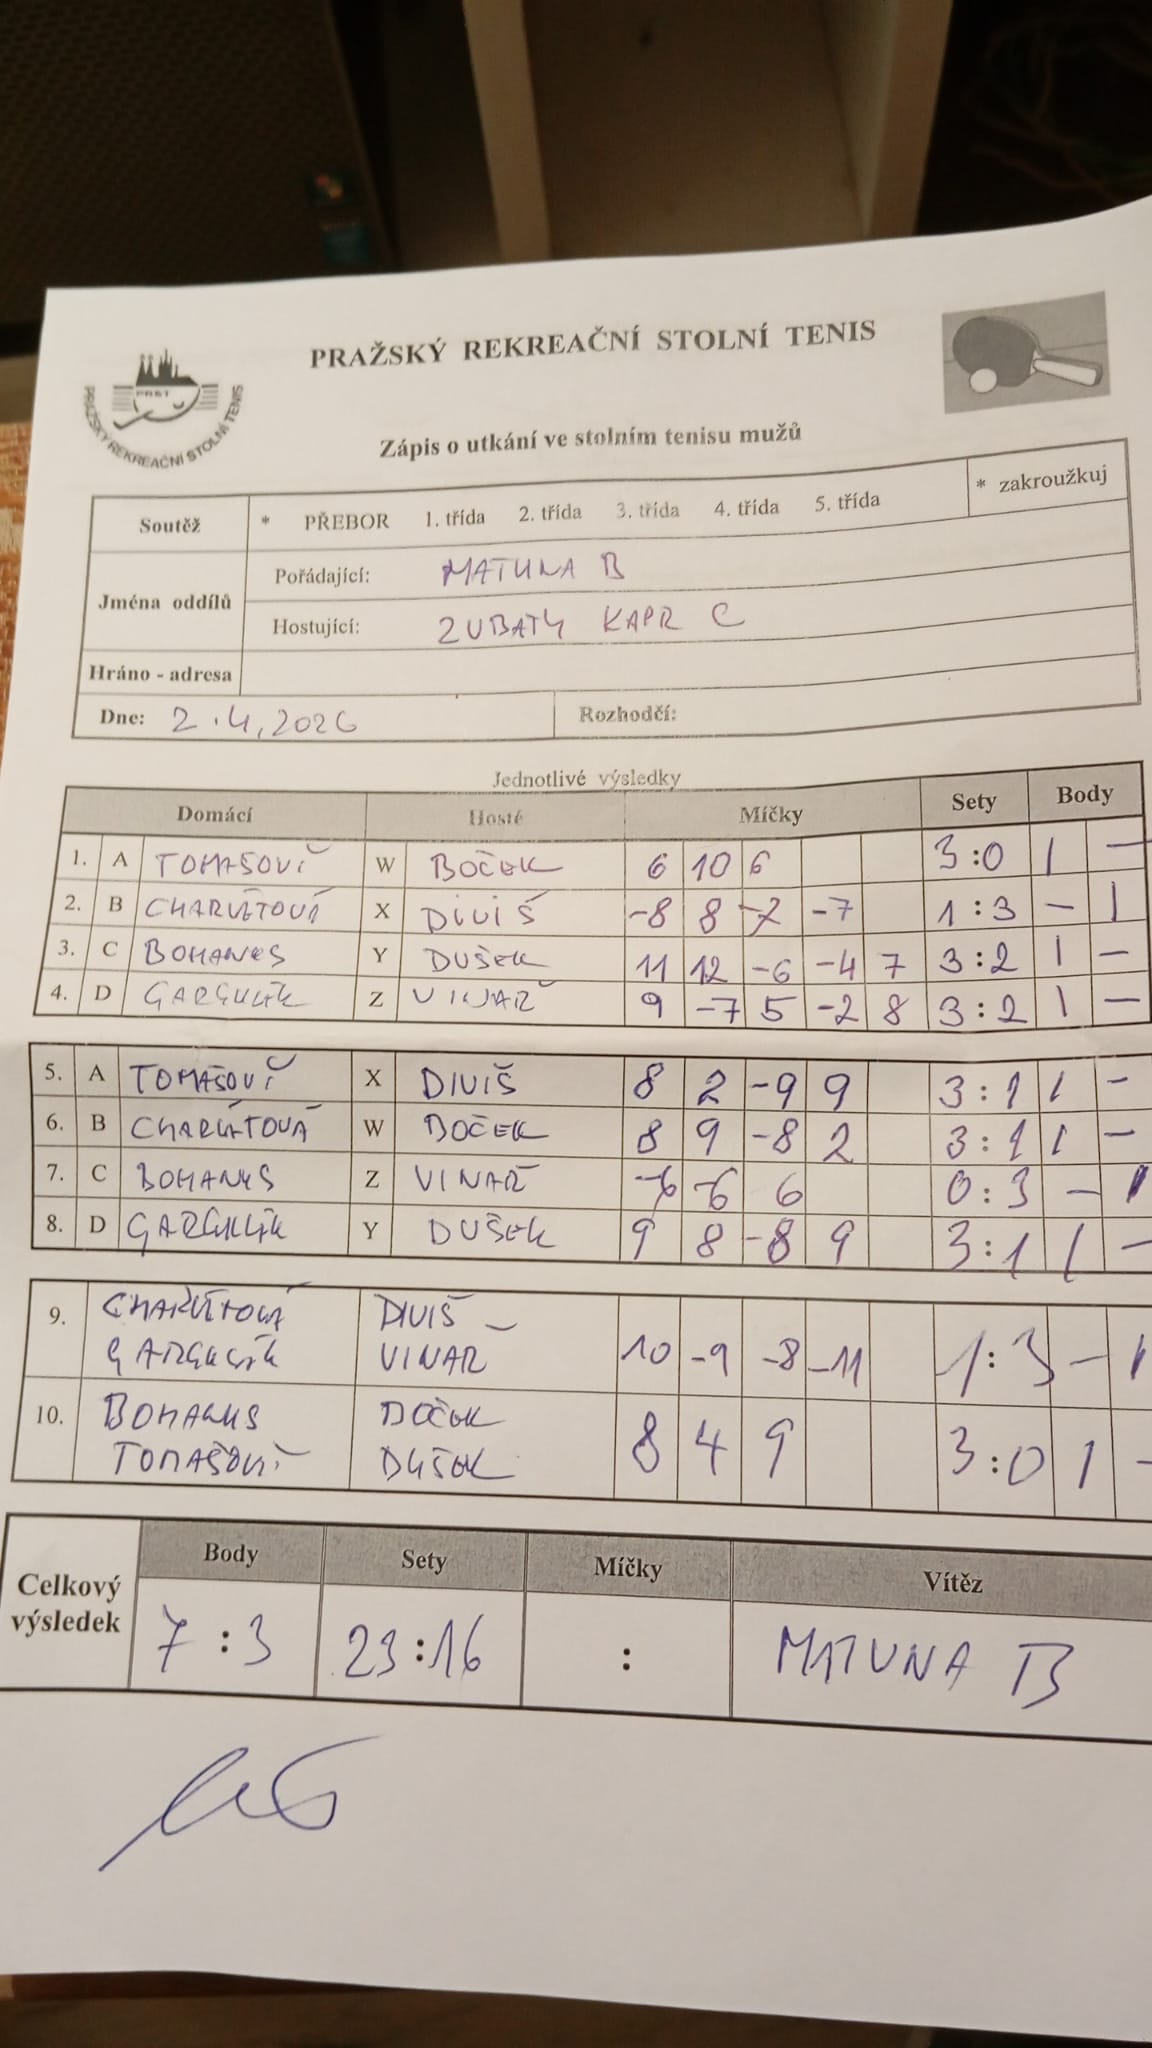 PRAŽSKÝ REKREAČNÍ STOLNÍ TENIS
PRST
PRAŽSKÝ REKREAČNÍ STOLNÍ TENIS
Zápis o utkání ve stolním tenisu mužů
Soutěž * PŘEBOR 1. třída 2. třída 3. třída 4. třída 5. třída * zakroužkuj
Jména oddílů
Pořádající: MATUNA B
Hostující: ZUBATÝ KAPR C
Hráno - adresa
Dne: 2.4.2026 Rozhodčí:
Jednotlivé výsledky
Domácí Hosté Míčky Sety Body
1. A TOMAŠOVIČ W BOČEK 6 10 6 3:0 1 –
2. B CHARVÁTOVÁ X DIVIŠ -8 8 -7 -7 1:3 – 1
3. C BOHANUS Y DUŠEK 11 12 -6 -4 7 3:2 1 –
4. D Z VINAŘ 9 -7 5 -2 8 3:2 1 –
5. A TOMAŠOVIČ X DIVIŠ 8 2 -9 9 3:1 1 –
6. B CHARVÁTOVÁ W BOČEK 8 9 -8 2 3:1 1 –
7. C BOHANUS Z VINAŘ -6 -6 6 0:3 – 1
8. D Y DUŠEK 9 8 -8 9 3:1 1 –
9. CHARVÁTOVÁ DIVIŠ –
VINAR 10 -9 -8 -11 1:3 – 1
10. BOHANUS BOČEK
TOMAŠOVIČ DUŠEK 8 4 9 3:0 1 -
Celkový výsledek
Body Sety Míčky Vítěz
7:3 23:16 : MATUNA B